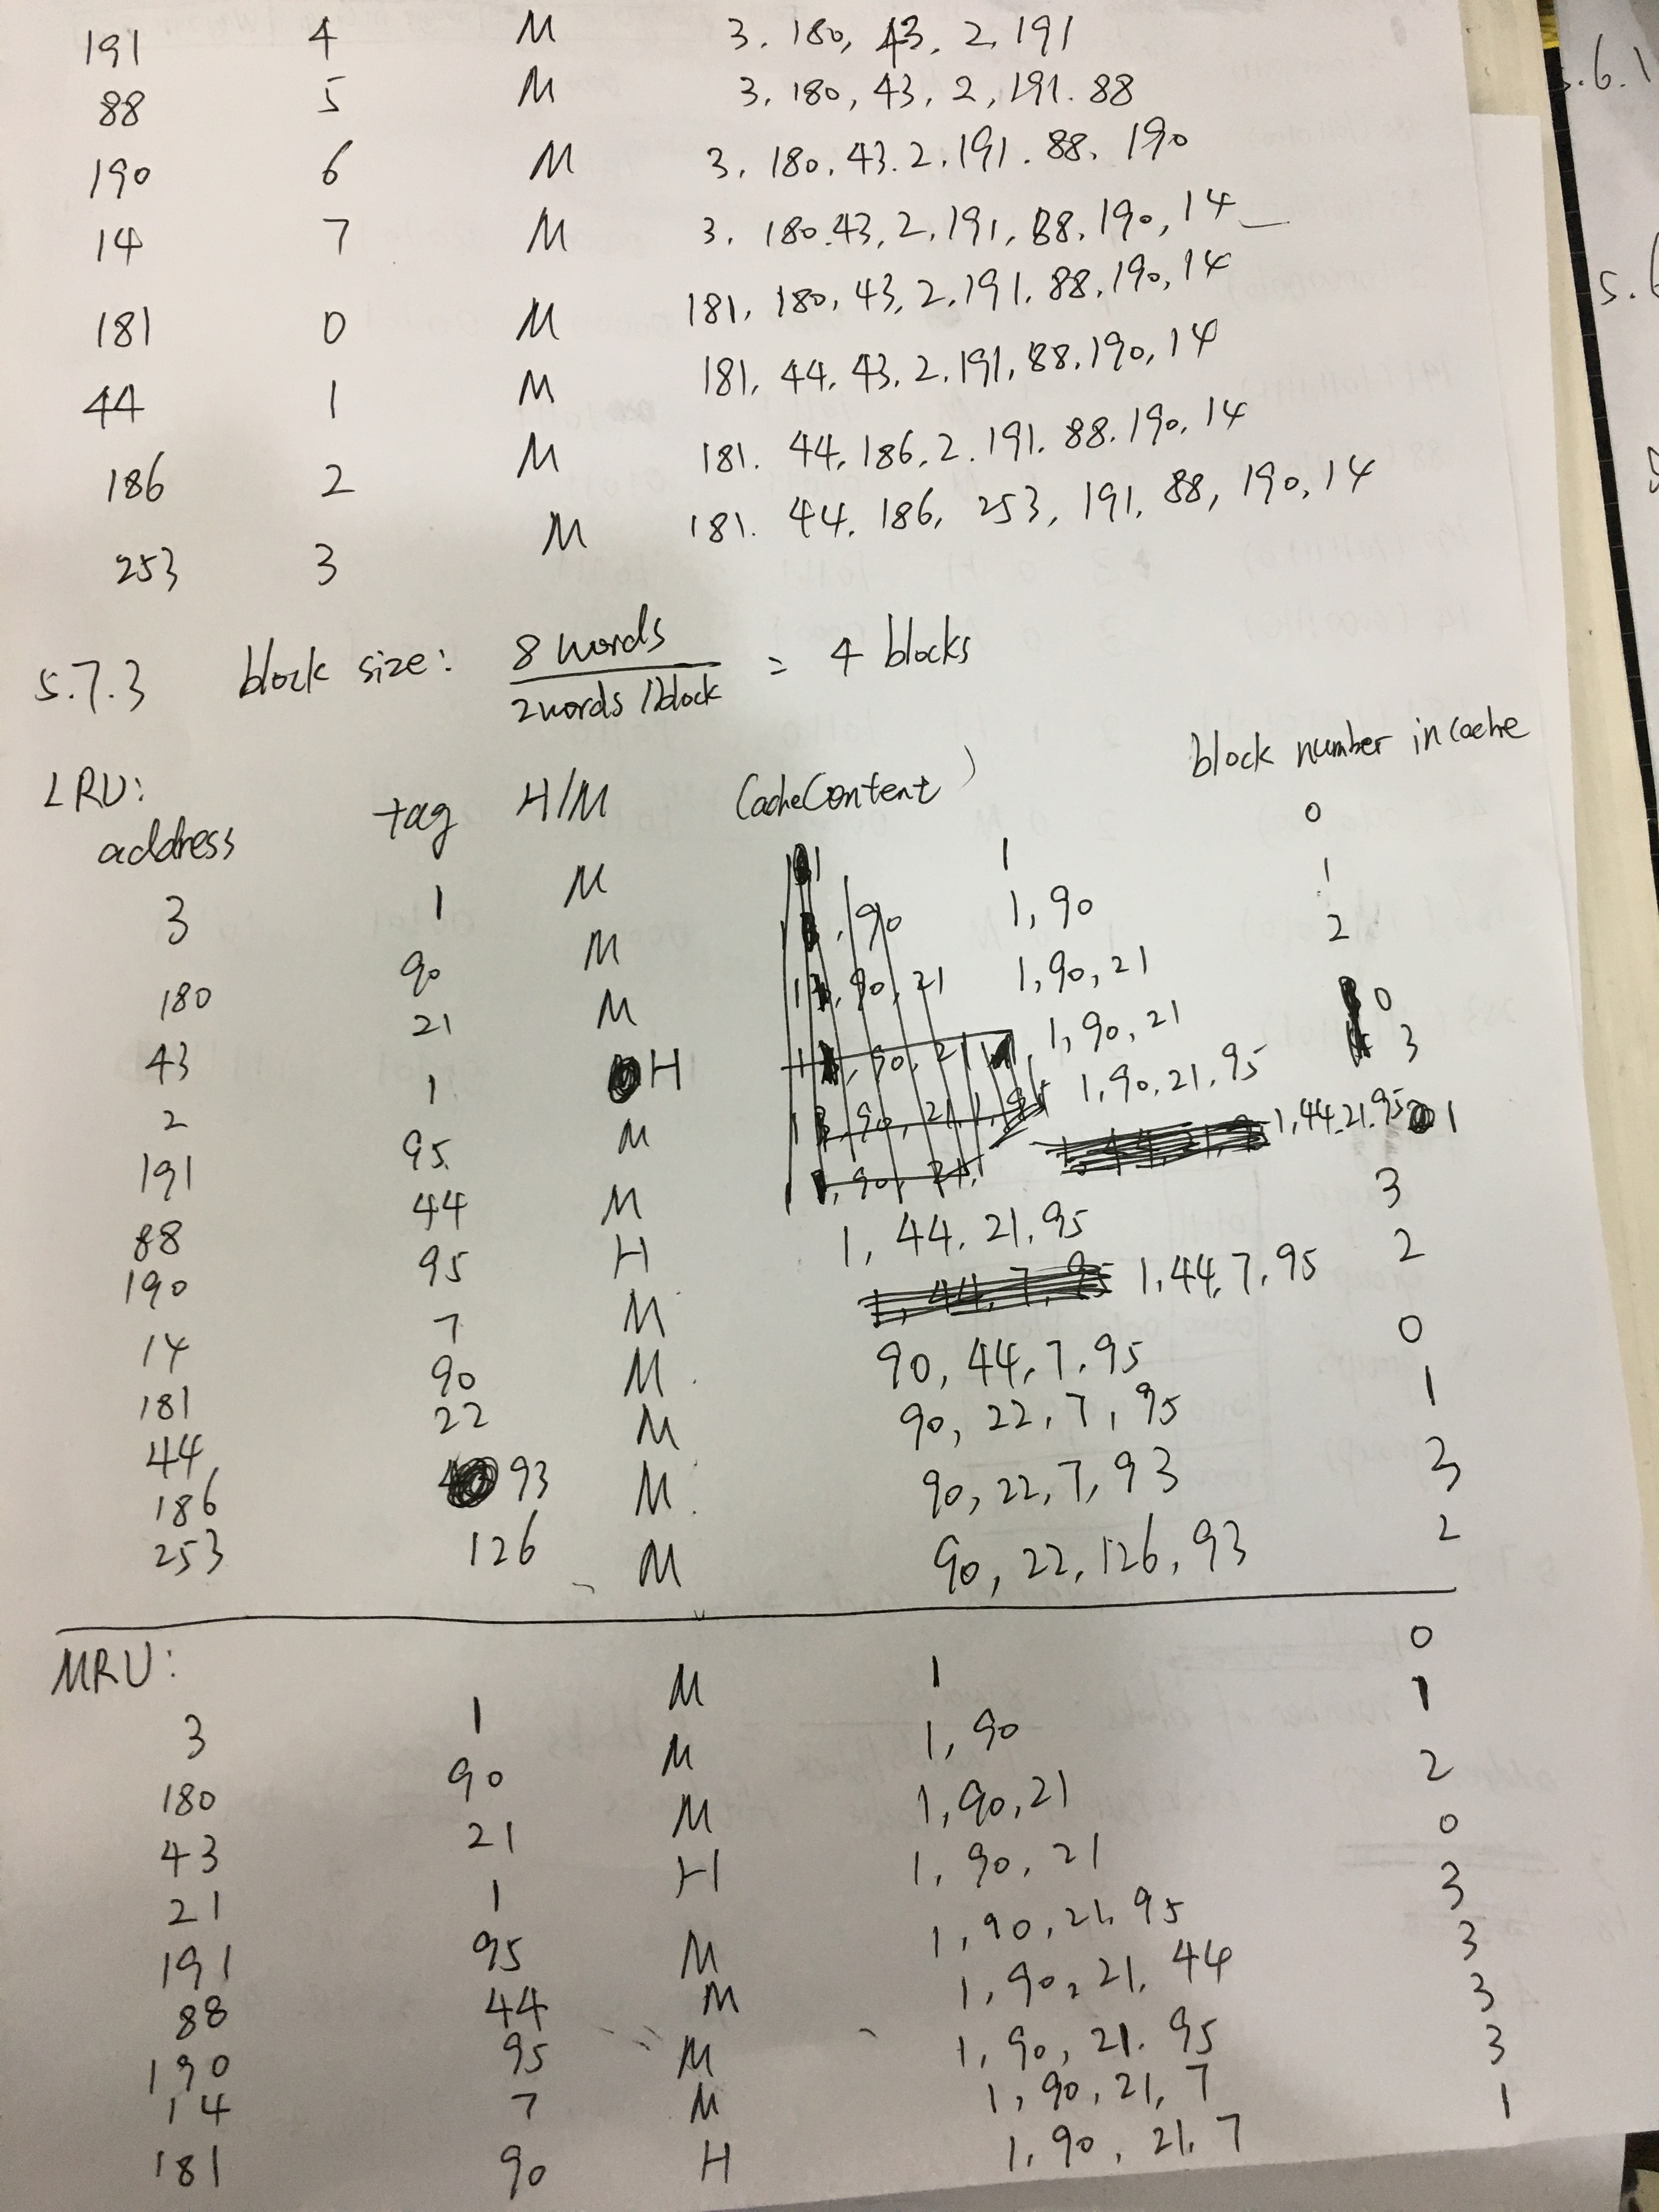 191 4 M 3. 180, 43. 2, 191
88 5 M 3. 180, 43. 2, 191. 88
190 6 M 3. 180. 43. 2. 191. 88. 190
14 7 M 3. 180. 43, 2. 191, 88, 190, 14
181 0 M 181, 180, 43, 2. 191. 88. 190, 14
44 1 M 181. 44. 43. 2. 191, 88. 190, 14
186 2 M 181. 44. 186. 2. 191. 88. 190, 14
253 3 M 181. 44. 186, 253, 191, 88, 190, 14
5.7.3 block size: 8 words / 2 words / block = 4 blocks
LRU:
address tag H/M Cache Content) block number in cache
3 1 M 1 0
180 90 M 1, 90 1
43 21 M 1, 90, 21 2
2 1 H 1, 90, 21 0
191 95 M 1, 90. 21. 95 3
88 44 M 1, 44. 21. 95 1
190 95 H 1, 44. 21. 95 3
14 7 M 1, 44, 7. 95 2
181 90 M 90, 44, 7. 95 0
44 22 M 90, 22, 7, 95 1
186 93 M 90, 22, 7, 93 3
253 126 M 90, 22, 126, 93 2
MRU:
3 1 M 1 0
180 90 M 1, 90 1
43 21 M 1, 90, 21 2
21 1 H 1. 90, 21 0
191 95 M 1, 90, 21. 95 3
88 44 M 1, 90, 21. 44 3
190 95 M 1, 90, 21. 95 3
14 7 M 1, 90, 21, 7 3
181 90 H 1. 90, 21. 7 1
5.6.1